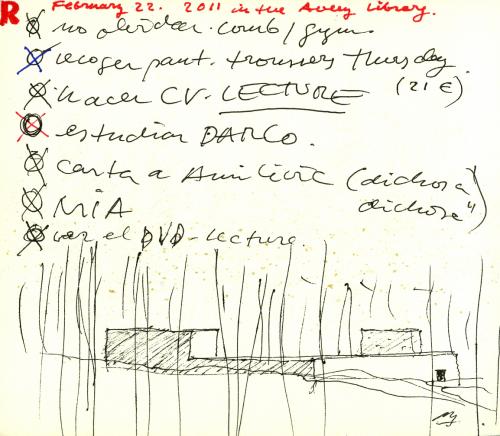 R February 22. 2011 in the Avery Library.
no olvidar comb/gym
recoger pant. trousers Thursday.
hacer CV - LECTURE (21 €)
estudiar DARCO.
carta a (dichosa
MIA dichosa")
ver el DVD - lecture.